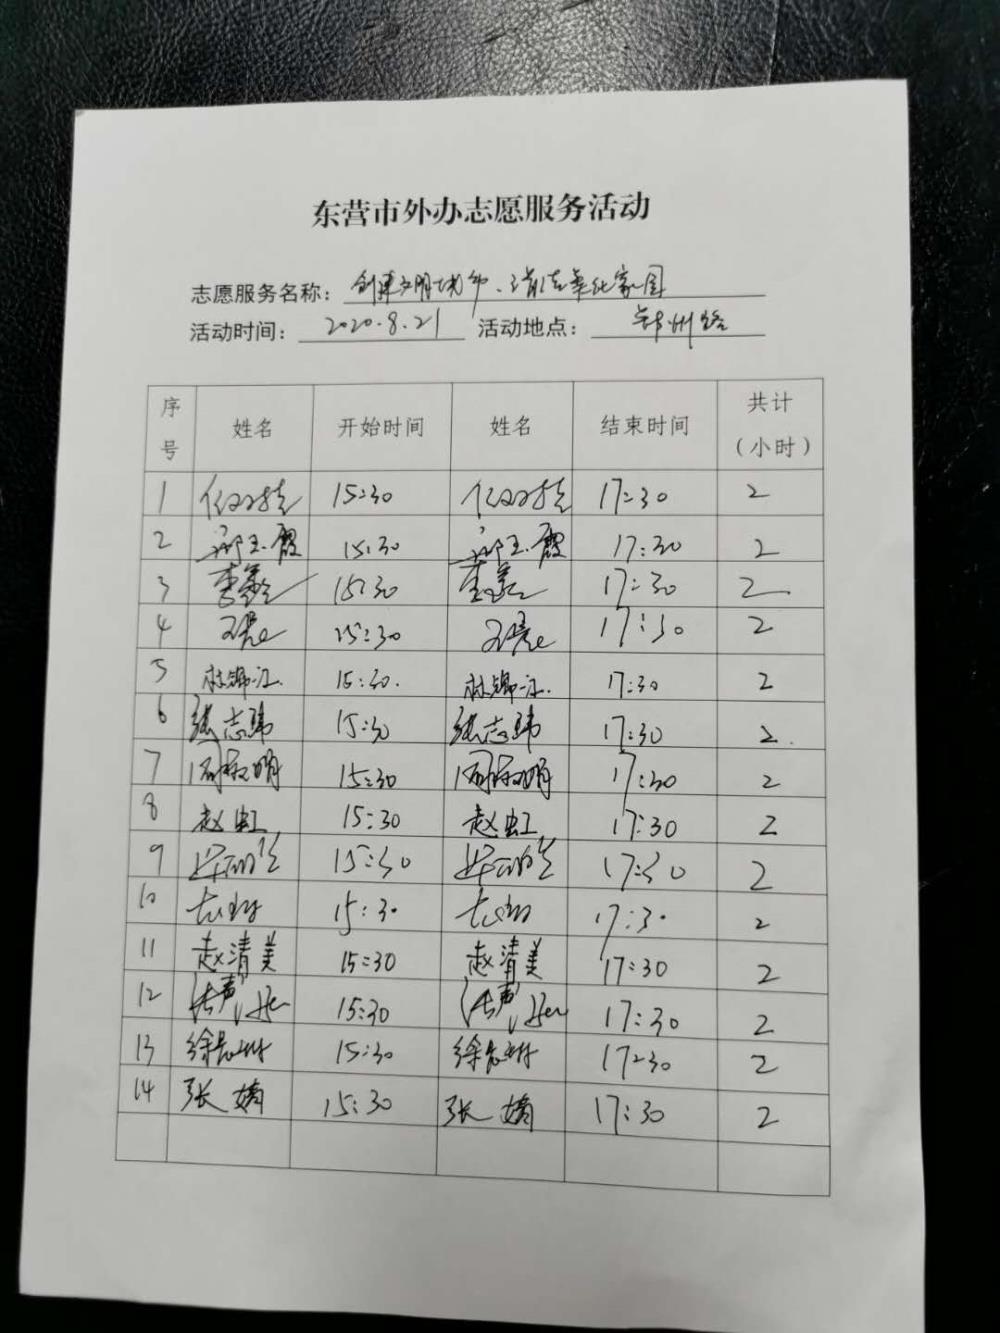 东营市外办志愿服务活动
志愿服务名称：创建文明城市、清洁美化家园
活动时间：2020.8.21 活动地点：郑州路
序号 姓名 开始时间 姓名 结束时间 共计（小时）
1 15:30 17:30 2
2 15:30 17:30 2
3 15:30 17:30 2
4 15:30 17:30 2
5 林锦江. 15:30. 林锦江. 17:30 2
6 张志玮 15:30 张志玮 17:30 2.
7 15:30 17:30 2
8 赵虹 15:30 赵虹 17:30 2
9 15:30 17:30 2
10 15:30 17:30 2
11 赵清美 15:30 赵清美 17:30 2
12 15:30 17:30 2
13 15:30 17:30 2
14 张嫡 15:30 张嫡 17:30 2